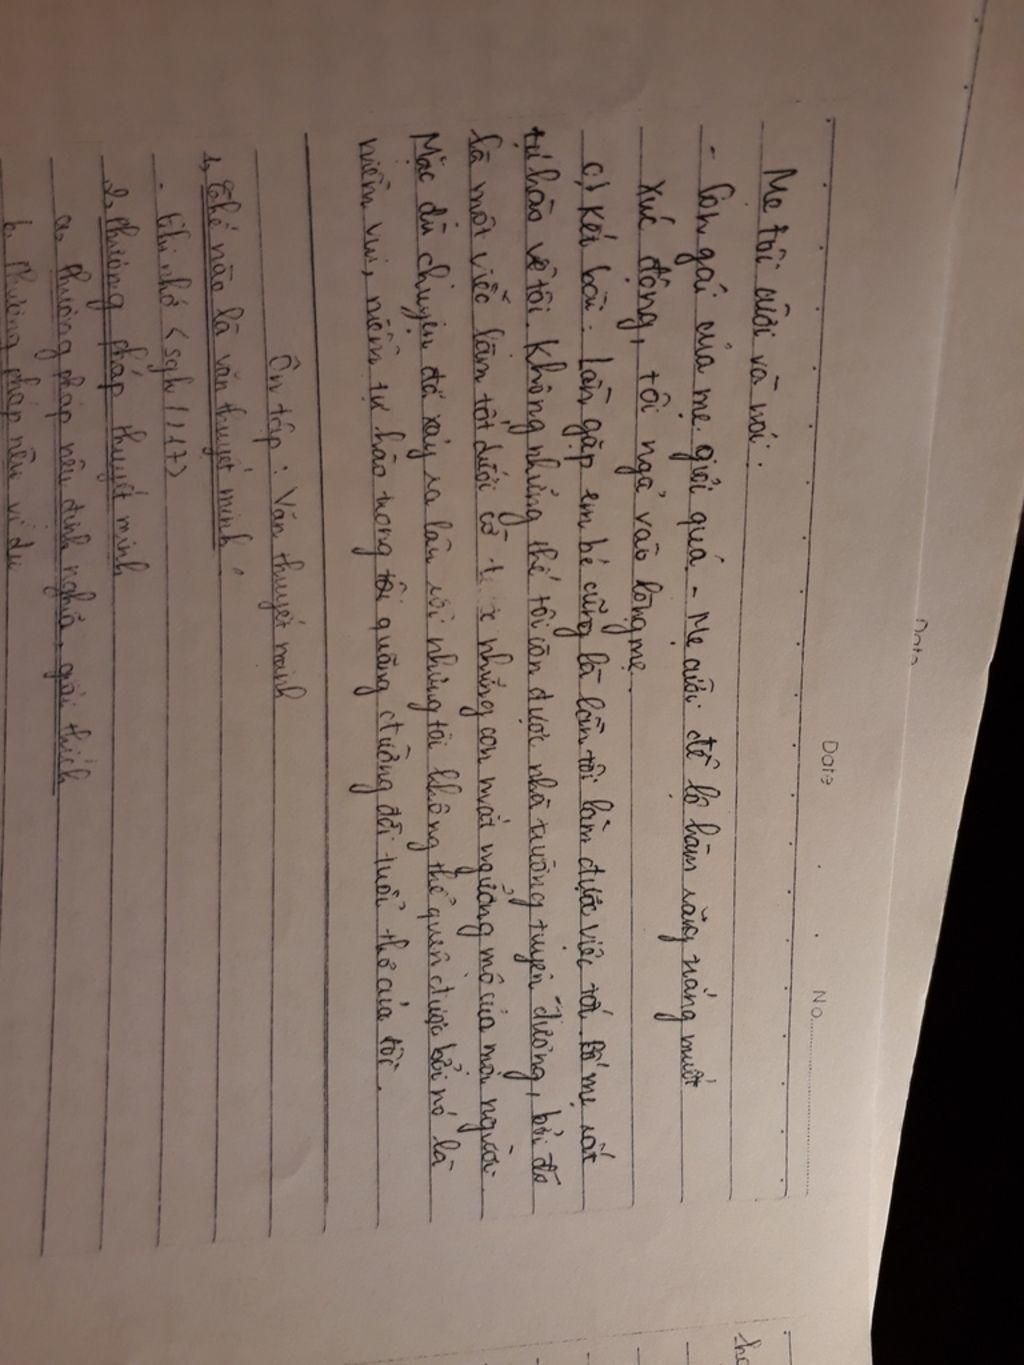 Date
Date No.
Mẹ tôi cười và nói:
- Con gái của mẹ giỏi quá - Mẹ cười để lộ hàm răng trắng muốt
Xúc động, tôi ngả vào lòng mẹ.
c) Kết bài: Lần gặp em bé cũng là lần tôi làm được việc tốt. Bố mẹ rất
tự hào về tôi. Không những thế tôi còn được nhà trường tuyên dương, bởi đó
là một việc làm tốt dưới cờ những con mắt ngưỡng mộ của mọi người.
Mặc dù chuyện đã xảy ra lâu rồi nhưng tôi không thể quên được bởi nó là
niềm vui, niềm tự hào trong tôi quãng đường đời tuổi thơ của tôi.
Ôn tập: Văn thuyết minh
1, Thế nào là văn thuyết minh.
. Ghi nhớ <sgk/117>
2, Phương pháp thuyết minh
a, Phương pháp nêu định nghĩa, giải thích
b, Phương pháp nêu ví dụ